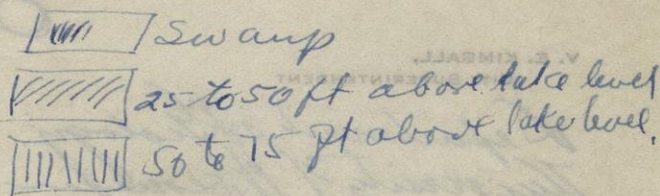 Swamp
25 to 50 ft above lake level
50 to 75 ft above lake level.
V. E. KIMBALL,
SUPERINTENDENT